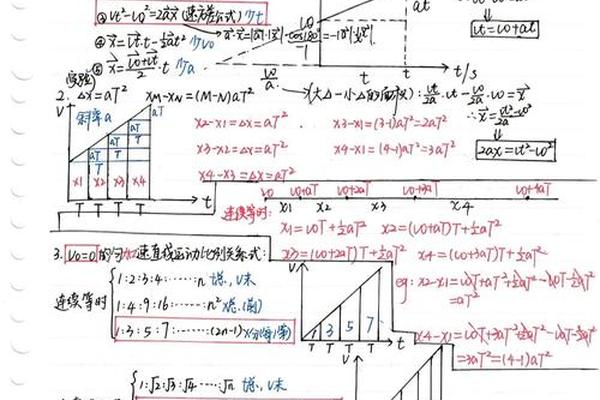 ③ vt²-v0²=2ax⃗ (速方差公式) 少t
④ x⃗=vt·t-½at² 少v0
⑤ x⃗=(v0+vt)/2·t 少a
v0
at
vt=v0+at
t t t/s
v0/a
(大△-小△的面积): vt/2a·vt-v0/2a·v0=x⃗
∴x⃗=(vt²-v0²)/2a
2ax=vt²-v0²
(实验)
2. Δx=aT² xM-xN=(M-N)aT²
V 斜率a aT
aT
aT T
aT T
T
x1 x2 x3 x4
T T T T t
x2-x1=Δx=aT² x3-x1=(3-1)aT²=2aT²
x3-x2=Δx=aT² x4-x1=(4-1)aT²=3aT²
x4-x3=Δx=aT²
v0 v0+aT v0+2aT v0+3aT v0+4aT
连续等时: x1 x2 x3 x4
x1=v0T+½aT² x2=(v0+aT)T+½aT²
x3=(v0+2aT)T+½aT² x4=(v0+3aT)T+½aT²
eg: x2-x1=v0T+aT²+½aT²-v0T-½aT²
=aT²
x4-x1=v0T+3aT²+½aT²-v0T-½aT²
=3aT²=(4-1)aT²
3. v0=0的匀加速直线运动比例关系式:
连续等时
1:2:3:4:……:n t总, v末
1:4:9:16:……n² x总
1:3:5:7:……(2n-1)
V
1 3 5 7
T T T T t
1:√2:√3:√4……:√n t总, v末
V